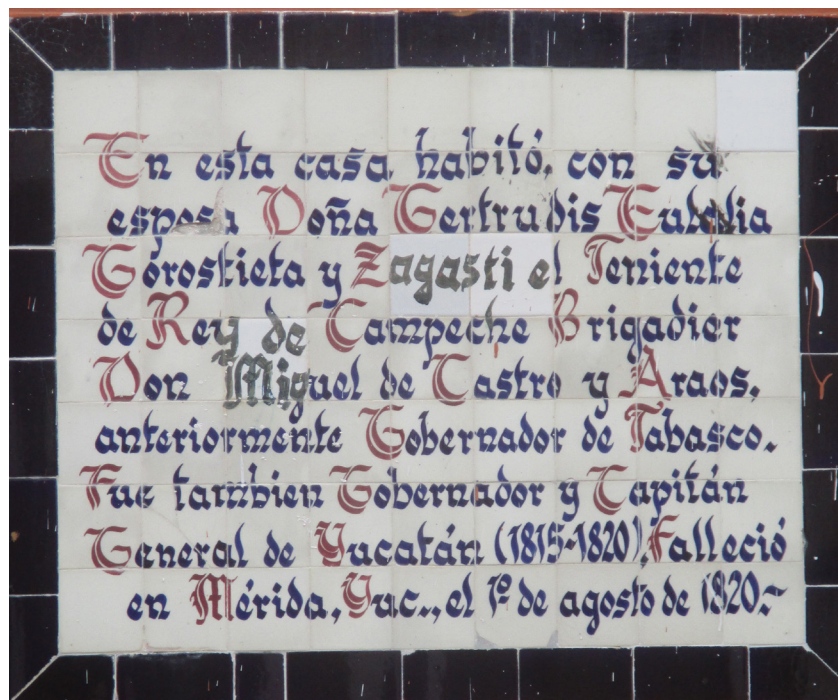 En esta casa habitó, con su
esposa Doña Gertrudis Eulalia
Gorostieta y Zagasti el Teniente
de Rey de Campeche Brigadier
Don Miguel de Castro y Araos,
anteriormente Gobernador de Tabasco.
Fue tambien Gobernador y Capitán
General de Yucatán (1815-1820), Falleció
en Mérida, Yuc., el 1º de agosto de 1820.-